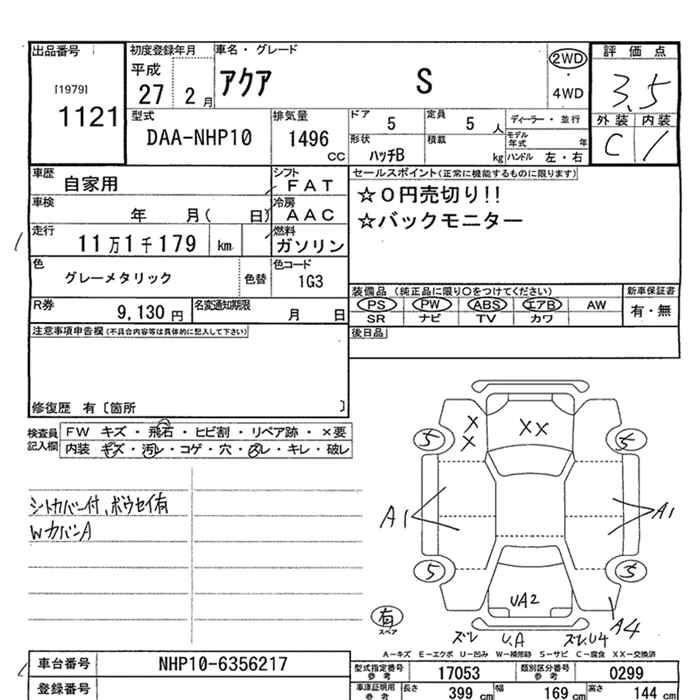 出品番号 初度登録年月 車名・グレード 2WD 評価点
[1979] 平成 アクア S ・ 3.5
1121 27 2月 4WD 外装 内装
型式 排気量 ドア 5 定員 5人 ディーラー・並行 C 1
DAA-NHP10 1496 CC 形状 ハッチB 積載 kg モデル年式 年 ハンドル 左・右
車歴 自家用 シフト FAT セールスポイント(正常に機能するものに限ります)
車検 年 月( 日) 冷房 AAC ☆0円売切り!!
走行 11万1千179 km 燃料 ガソリン ☆バックモニター
色 グレーメタリック 色替 色コード 1G3
装備品(純正品に限り○をつけてください) 新車保証書
R券 9,130円 名変通知期限 月 日 PS PW ABS エアB AW 有・無
SR ナビ TV カワ
注意事項申告欄(不具合内容等は具体的に記入して下さい) 後日品
修復歴 有〔箇所 〕
検査員記入欄 FW キズ・飛石・ヒビ割・リペア跡・×要
内装 キズ・汚レ・コゲ・穴・スレ・キレ・破レ
X X XX
5 5
シートカバー付、ボウセイ有
WカバーA
A1 A1
5 5
UA2
有 スペア
ズレ U,A ズレ,U4 A4
A−キズ E−エクボ U−凹み W−補修跡 S−サビ C−腐食 XX−交換済
車台番号 NHP10-6356217 型式指定番号 参考 17053 類別区分番号 参考 0299
登録番号 車庫証明用 参考 長さ 399 cm 幅 169 cm 高さ 144 cm